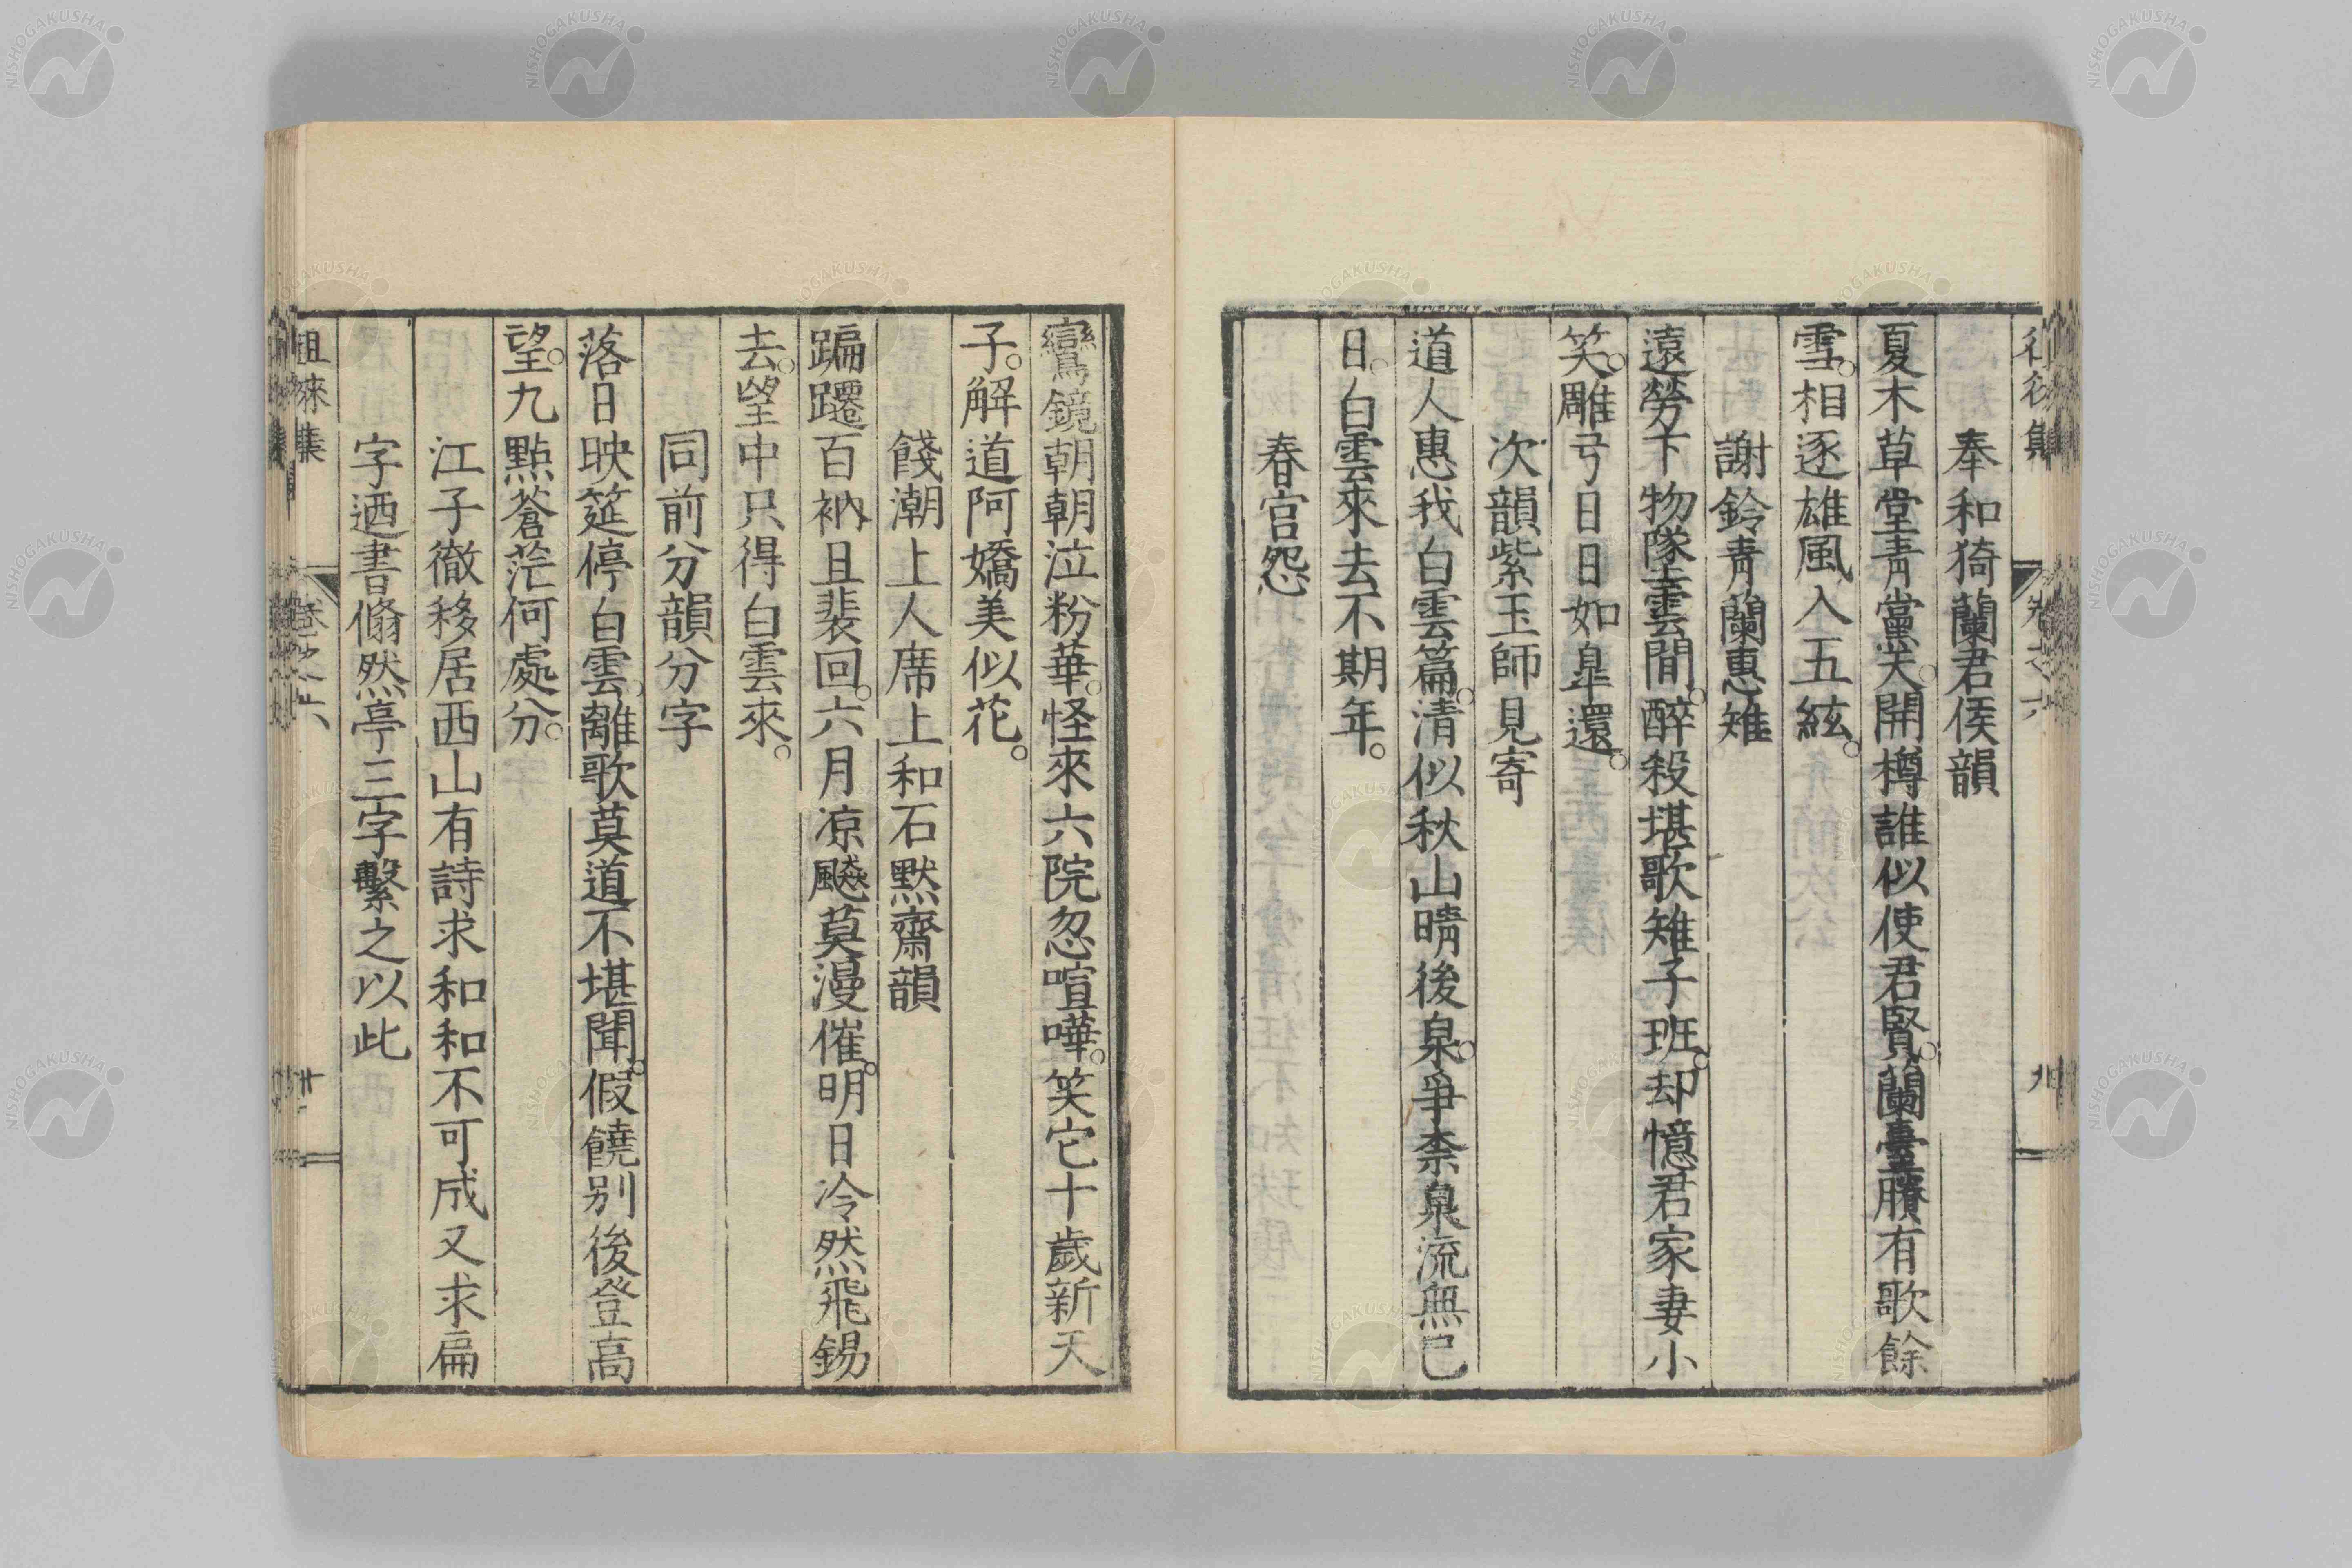 奉和猗蘭君侯韻
夏木草堂靑黨天。開樽誰似使君賢。蘭臺賸有歌餘
雪。相逐雄風入五絃。
謝鈴靑蘭惠雉
遠勞下物墜雲間。醉殺堪歌雉子班。却憶君家妻小
笑。雕弓日日如皐還。
次韻紫玉師見寄
道人惠我白雲篇。清似秋山晴後泉。爭柰泉流無已
日。白雲來去不期年。
春宮怨
卷之六
九
鸞鏡朝朝泣粉華。怪來六院忽喧嘩。笑它十歲新天
子。解道阿嬌美似花。
餞潮上人席上和石默齋韻
蹁躚百衲且裴回。六月凉飈莫漫催。明日冷然飛錫
去。望中只得白雲來。
同前分韻分字
落日映筵停白雲。離歌莫道不堪聞。假饒別後登高
望。九點蒼茫何處分。
江子徹移居西山有詩求和和不可成又求扁
字迺書翛然亭三字繫之以此
徂徠集
卷之六
NISHOGAKUSHA